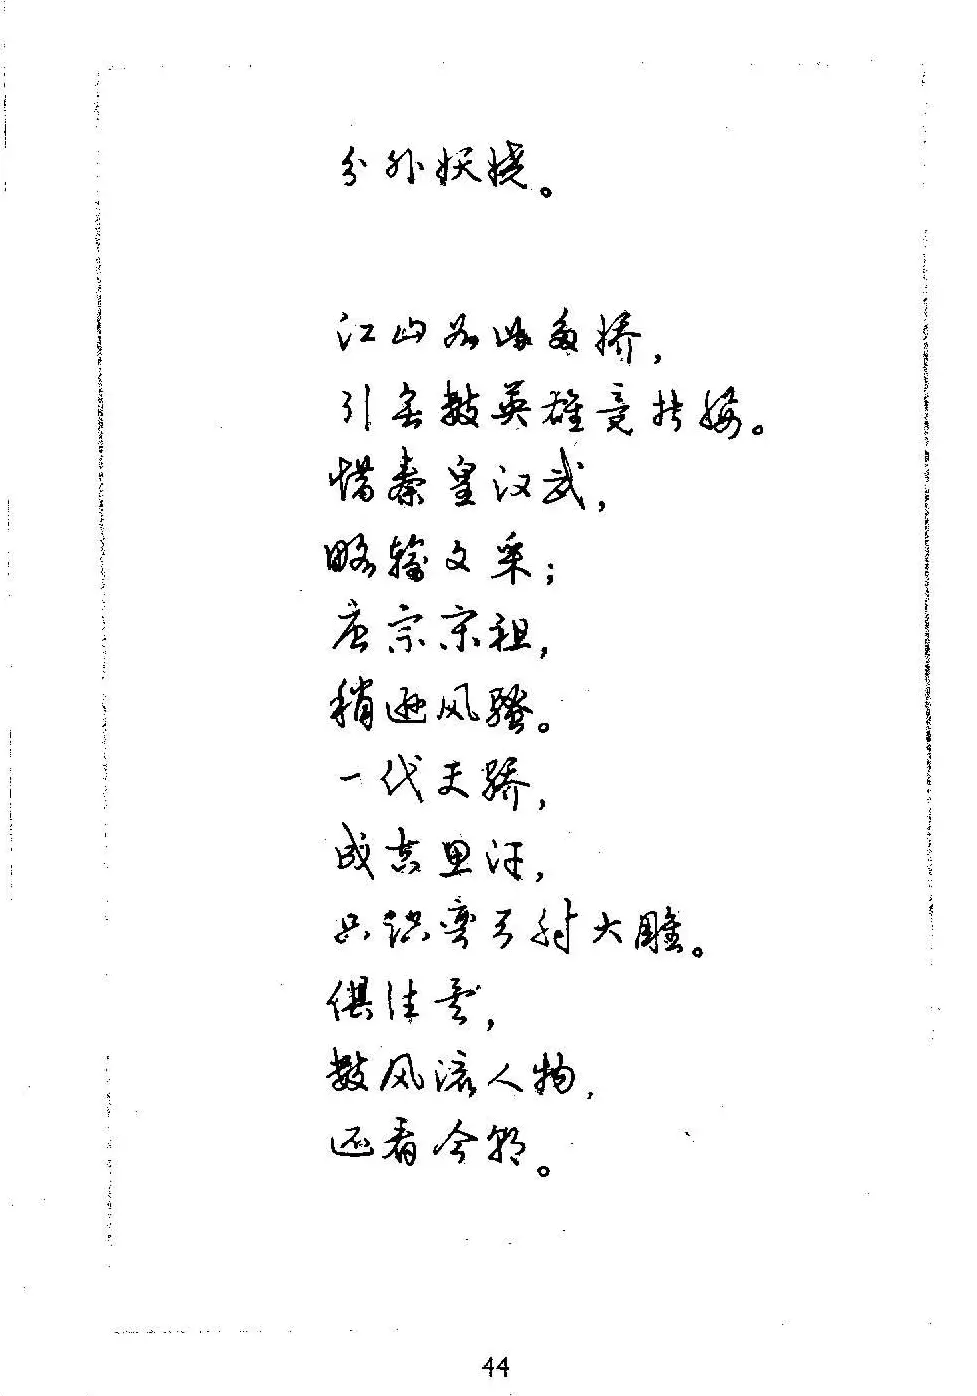 分外妖娆。
江山如此多娇，
引无数英雄竞折腰。
惜秦皇汉武，
略输文采；
唐宗宋祖，
稍逊风骚。
一代天骄，
成吉思汗，
只识弯弓射大雕。
俱往矣，
数风流人物，
还看今朝。
44